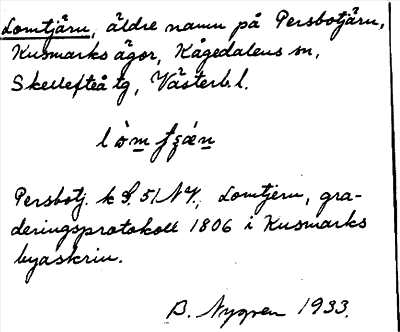 Lomtjärn, äldre namn på Persbotjärn,
Kusmarks ägor, Kågedalens sn,
Skellefteå tg, Västerb. l.
Persbotj. k S. 51 NV., Lomtjern, gra-
deringsprotokoll 1806 i Kusmarks
byaskrin.
B. Nygren 1933.